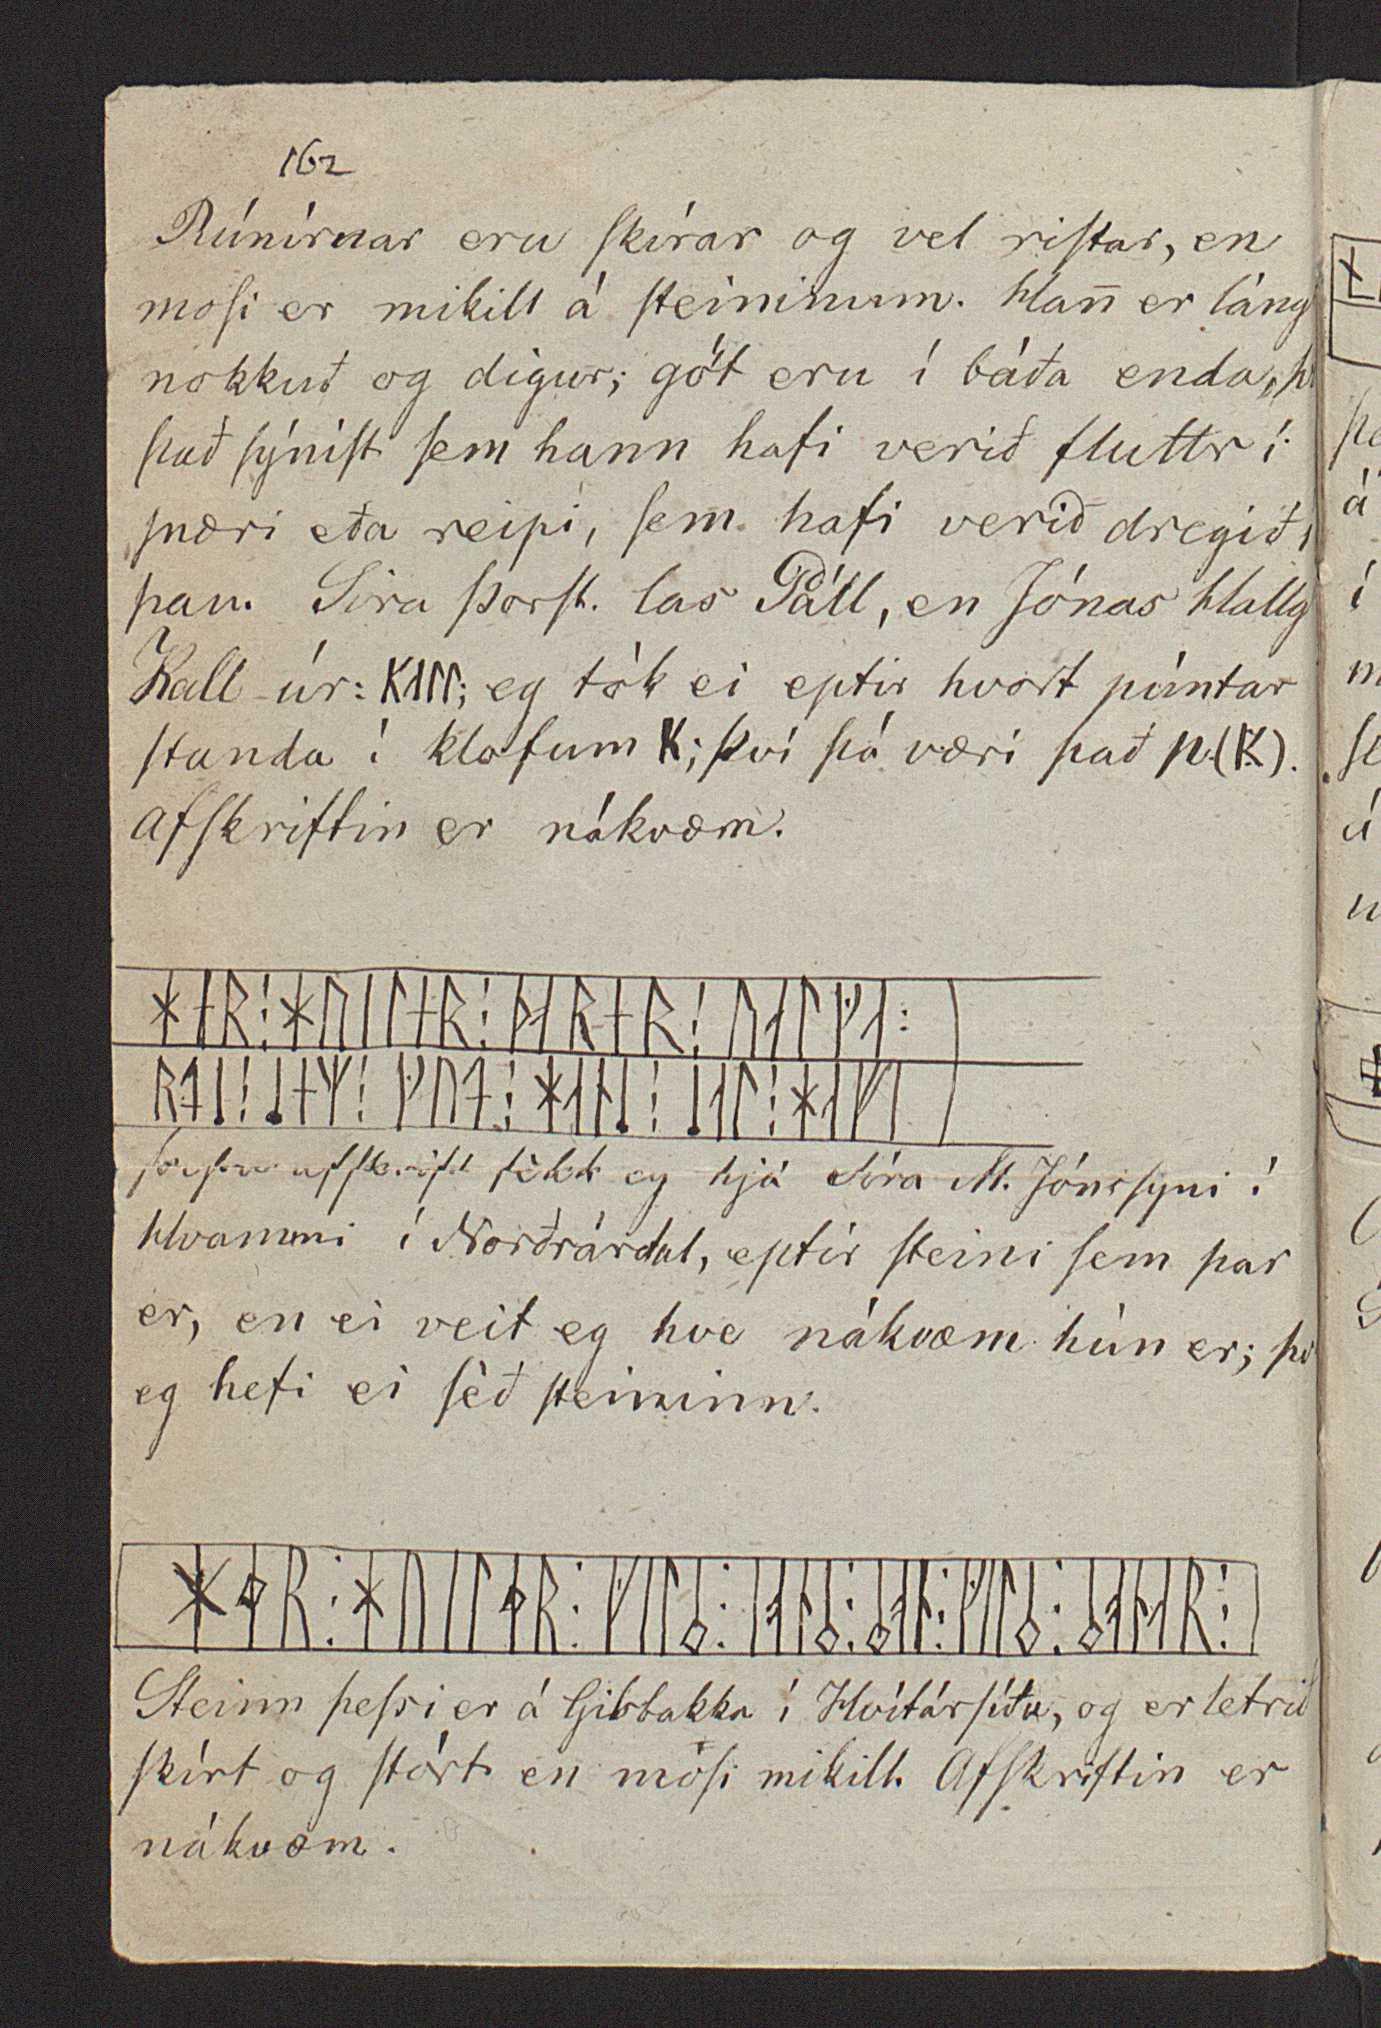 162
Rúnirnar eru skírar og vel ristar, en
mosi er mikill á steininum. Han̅ er láng
nokkuð og digur; göt eru í báða enda,
það sýnist sem hann hafi verið fluttr í
snæri eða reipi, sem hafi verið dregið
þau. Síra Þorst. las Páll, en Jónas Hallg
Kall úr: ᴋᛆᛚᛚ; eg tók ei eptir hvort púntar
standa í klofum K; því þá væri það p.(K).
Afskriftin er nákvæm.
ᚼᚽᚱ:ᚼᚢᛁᛚᚽᚱ:ᚦᚮᚱᚽᚱ:ᚢᛆᛚᚵᛆ:
ᚱᚽᛁ:ᛁᚽᛉ:ᚵᚢᚽ:ᚼᛆᚿᛁ:ᛁᛆᛚ:ᚼᛆᚠᛁ
þessa afskrift fèkk eg hjá Síra M. Jónssyni í
Hvammi í Norðrárdal, eptir steini sem þar
er, en ei veit eg hve nákvæm hún er; því
eg hefi ei sèð steininn.
ᚼᚽᚱ:ᚼᚢᛁᛚᚽᚱ:ᚵᛁᛚᛋ:ᛁᛆᚿᛋ:ᛋᛆᚿ:ᚵᛁᛚᛋ:ᛋᛆᚿᛆᚱ:
Steinn þessi er á Gilsbakka í Hvítársíðu, og er letrið
skírt og stórt en mosi mikill. Afskriftin er
nákvæm.